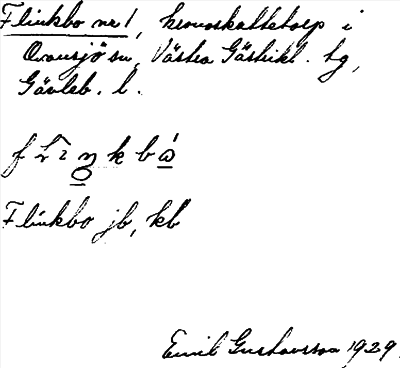 Flinkbo nr 1, kronoskattetorp i
Ovansjö sn, Västra Gästrikl. tg,
Gävleb. l.
Flinkbo jb, kb
Emil Gustavsson 1929.